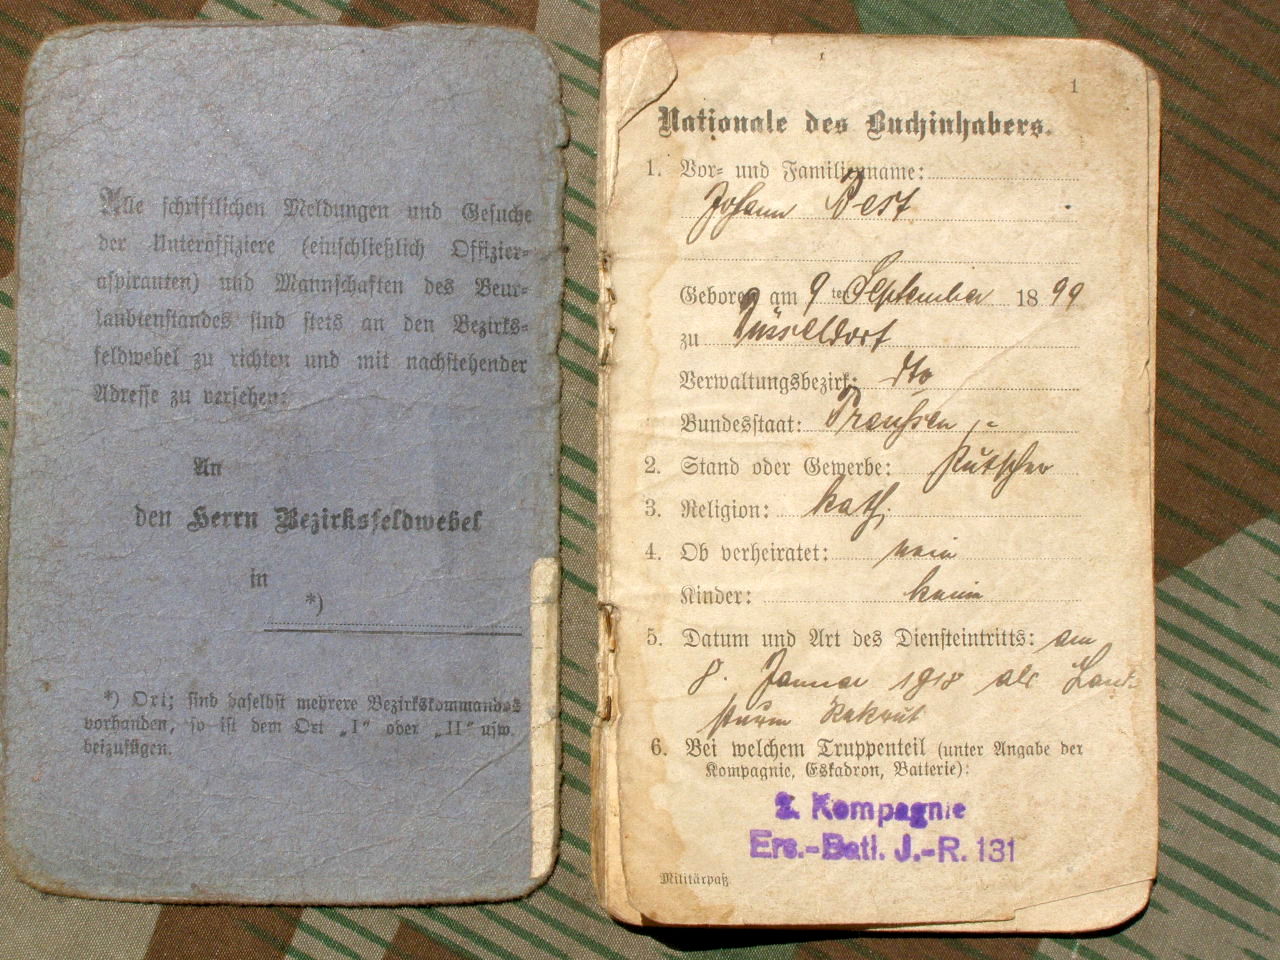 Alle schriftlichen Meldungen und Gesuche
der Unteroffiziere (einschließlich Offizier-
aspiranten) und Mannschaften des Beur-
laubtenstandes sind stets an den Bezirks-
feldwebel zu richten und mit nachstehender
Adresse zu versehen:
An
den Herrn Bezirksfeldwebel
in
*)
*) Ort; sind daselbst mehrere Bezirkskommandos
vorhanden, so ist dem Ort „I" oder „II" usw.
beizufügen.
1
Nationale des Buchinhabers.
1. Vor- und Familienname:
Johann
Geboren am 9 ten September 1899
zu Düsseldorf
Verwaltungsbezirk: dto
Bundesstaat: Preußen
2. Stand oder Gewerbe: Kutscher
3. Religion: kath.
4. Ob verheiratet: nein
Kinder: kein
5. Datum und Art des Diensteintritts: am
8. Januar 1918 als Land-
sturm Rekrut
6. Bei welchem Truppenteil (unter Angabe der
Kompagnie, Eskadron, Batterie):
2. Kompagnie
Ers.-Batl. J.-R. 131
Militärpaß